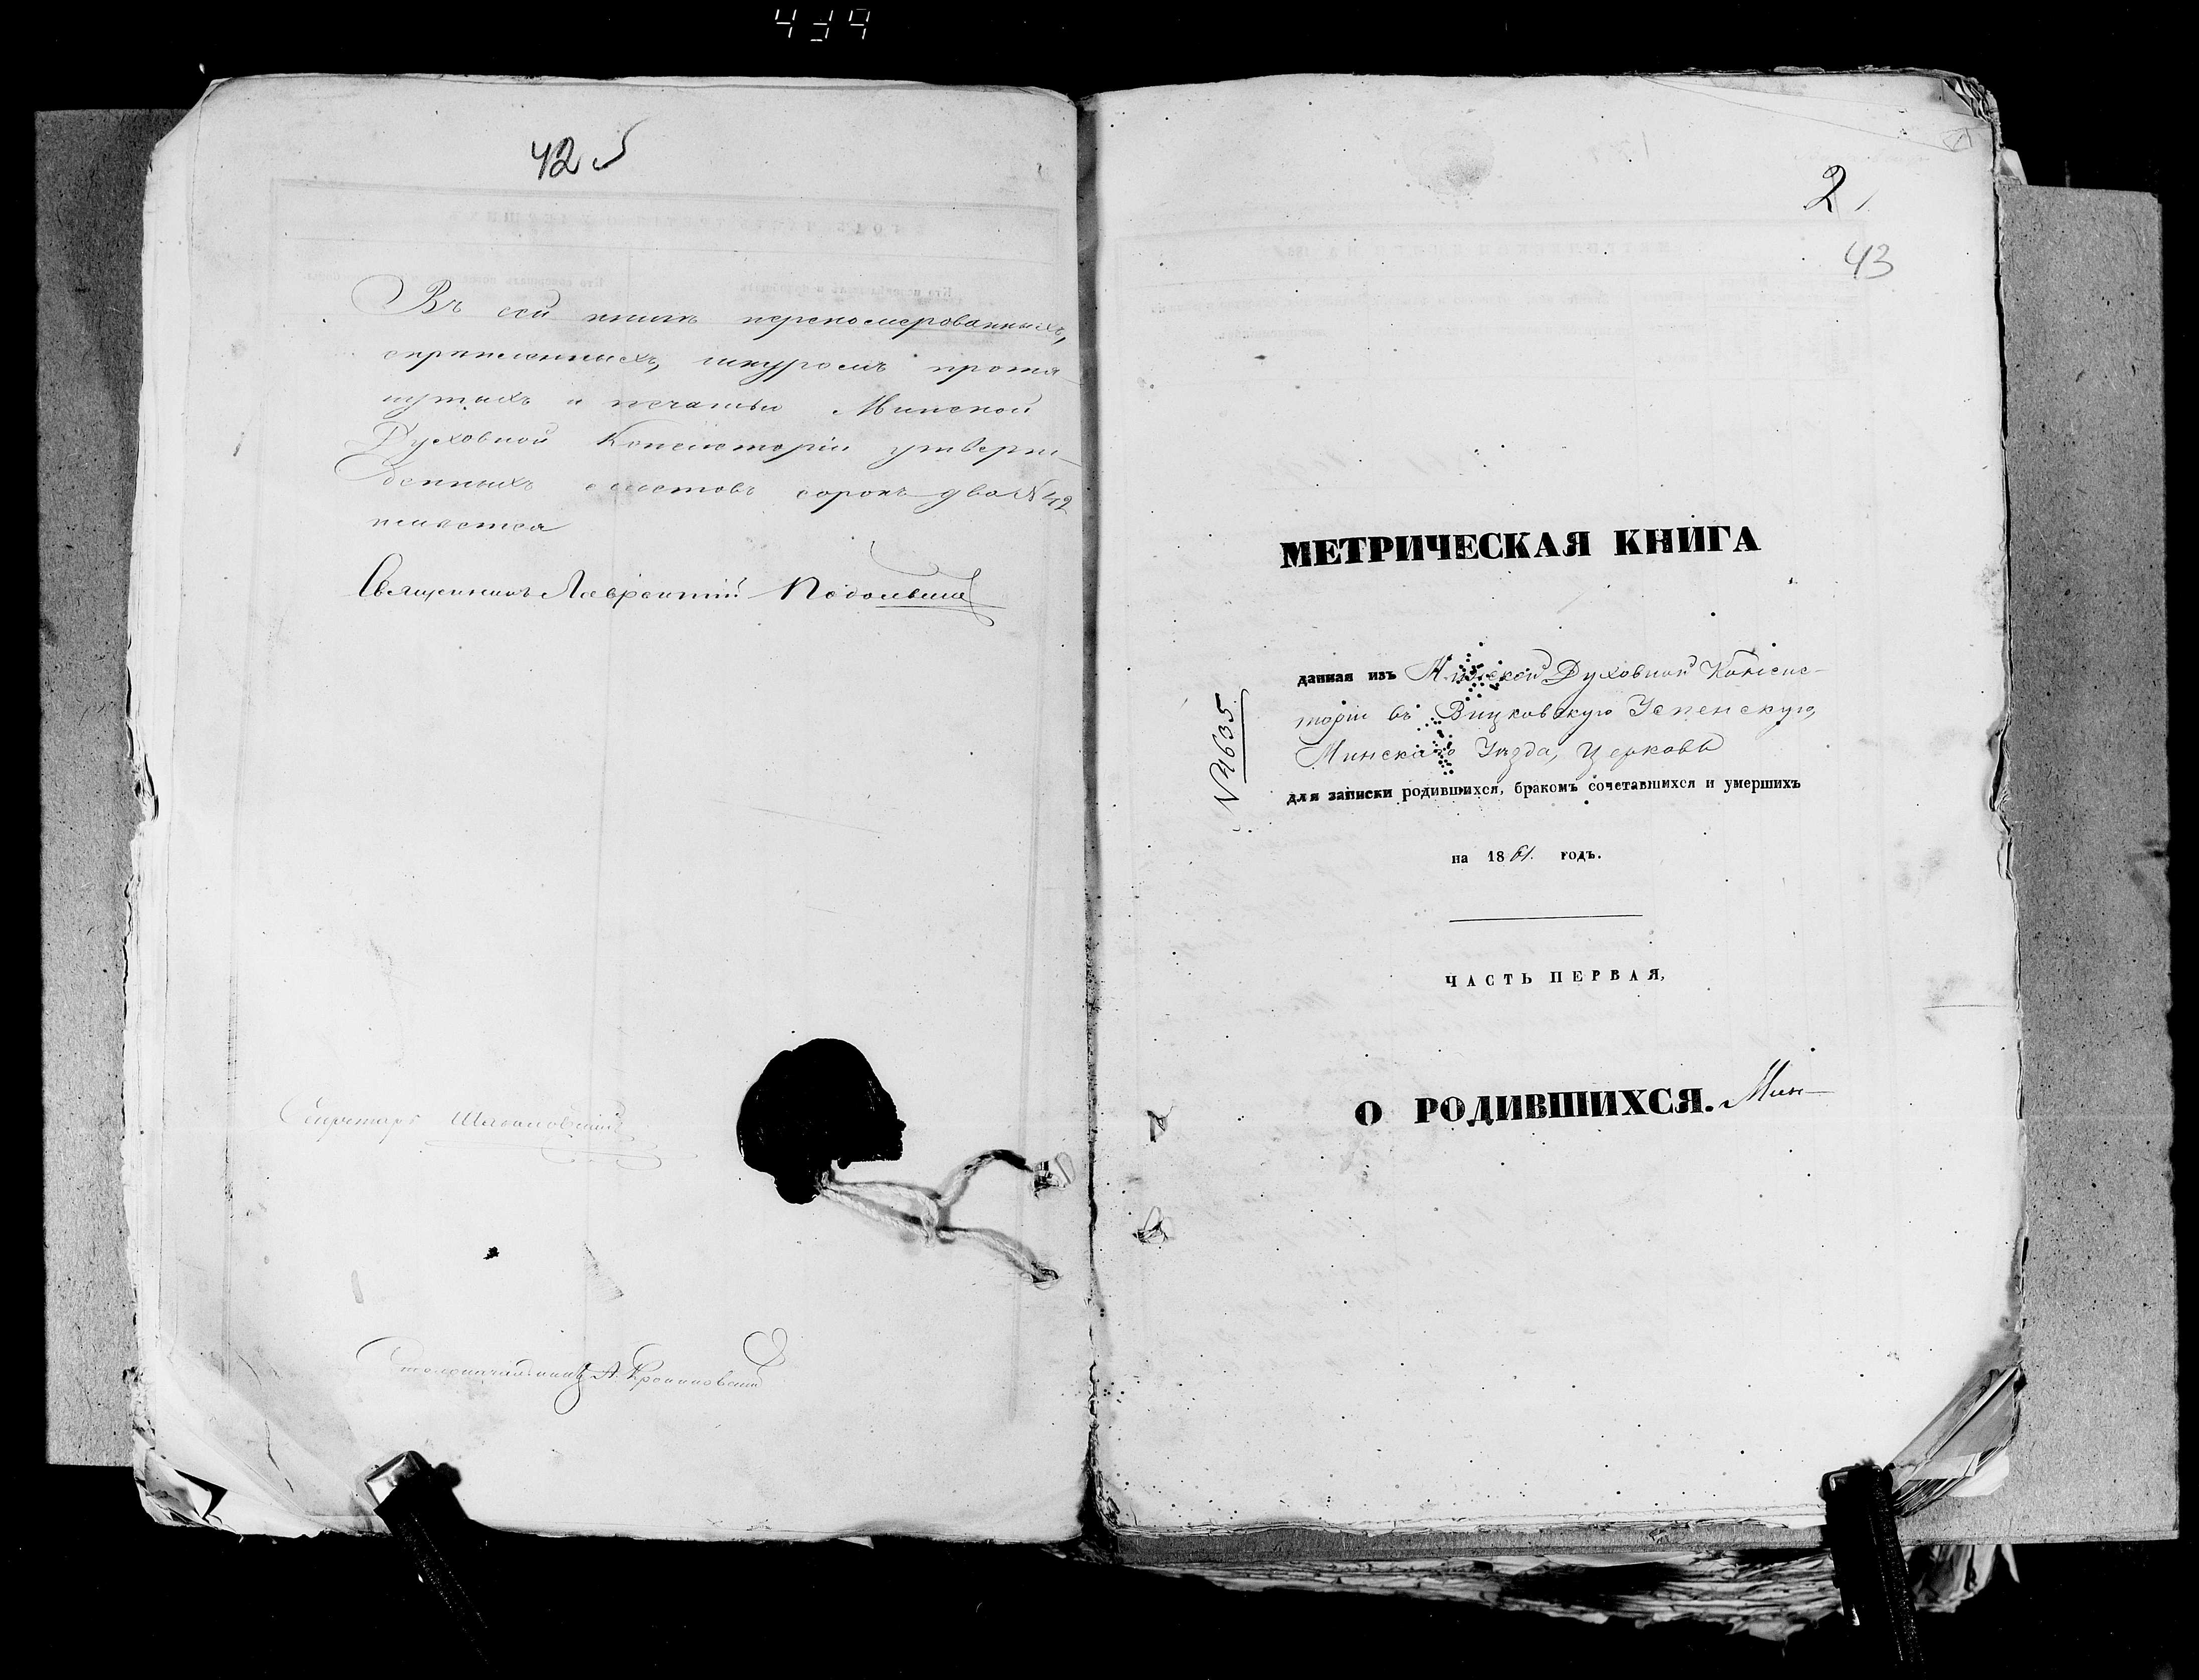 42
Въ сей книгѣ перенумерованныхъ,
скрѣпленныхъ, шнуромъ протя-
нутыхъ и печатью Минской
Духовной Консисторіи утверж-
денныхъ листовъ сорокъ два N 42
имѣется
Священникъ Лаврентій
Секретарь
Столоначальникъ А.
2
43
МЕТРИЧЕСКАЯ КНИГА
данная изъ Минской Духовной Консис-
торіи въ Вицковскую Успенскую,
Минскаго Уѣзда, церковь
для записки родившихся, бракомъ сочетавшихся и умершихъ
на 1861. годъ.
N 4635.
ЧАСТЬ ПЕРВАЯ,
О РОДИВШИХСЯ. Мин-